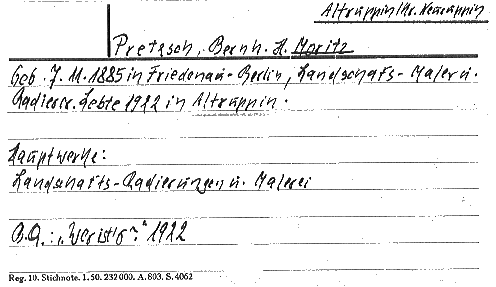 Altruppin/Kr. Neuruppin
Pretzsch, Bernh. H. Moritz
Geb. 7. 11. 1885 in Friedenau-Berlin, Landschafts-Maler u.
Radierer. Lebte 1922 in Altruppin.
Hauptwerke:
Landschafts-Radierungen u. Malerei
B.Q.: „Wer ist's?" 1922
Reg. 10. Stichnote. 1. 50. 232000. A. 803. S. 4062